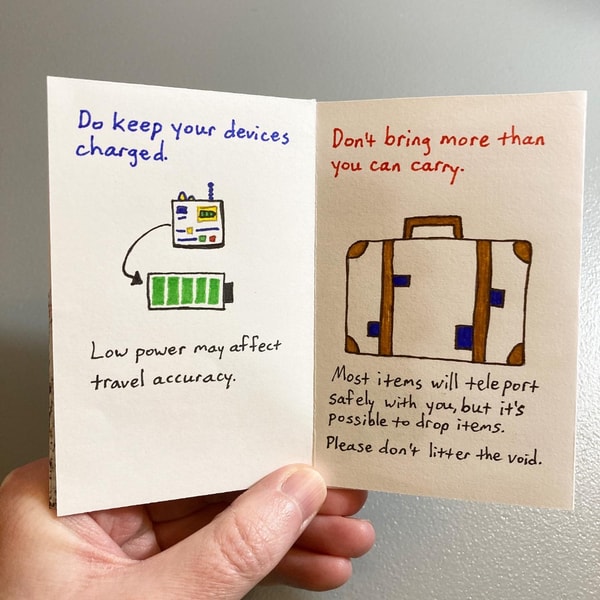 Do keep your devices
charged.
Low power may affect
travel accuracy.
Don't bring more than
you can carry.
Most items will teleport
safely with you, but it's
possible to drop items.
Please don't litter the void.